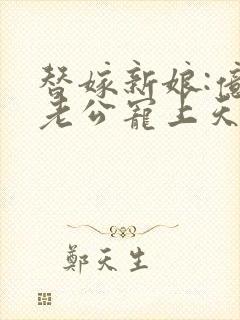 替嫁新娘:億
老公寵上天
鄭天生